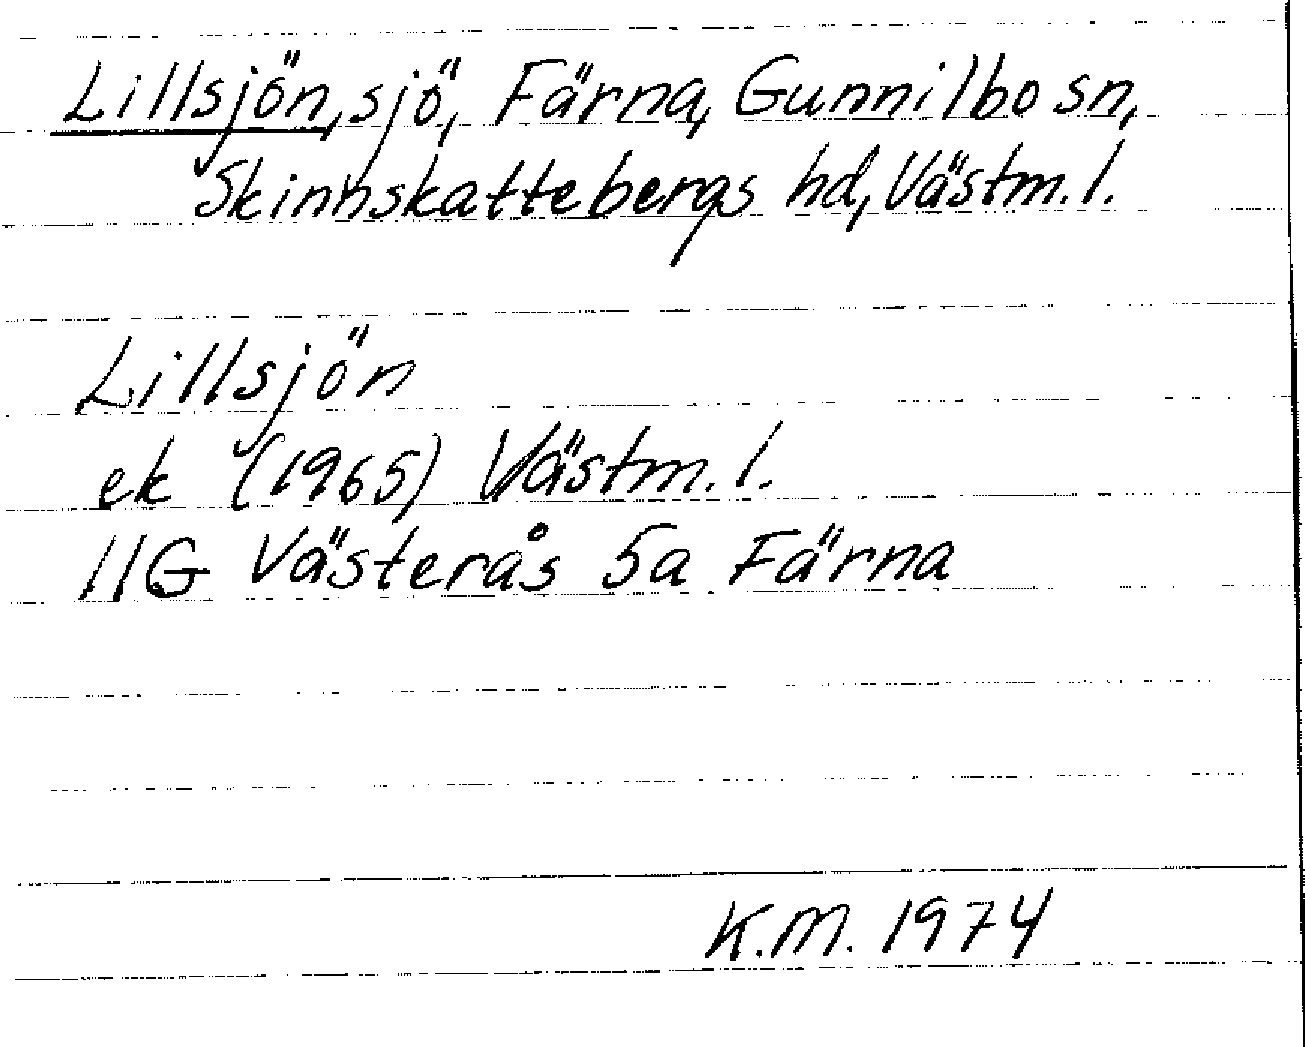 Lillsjön, sjö, Färna, Gunnilbo sn,
Skinnskattebergs hd, Västm. l.
Lillsjön
ek (1965) Västm. l.
11G Västerås 5a Färna
K.M. 1974